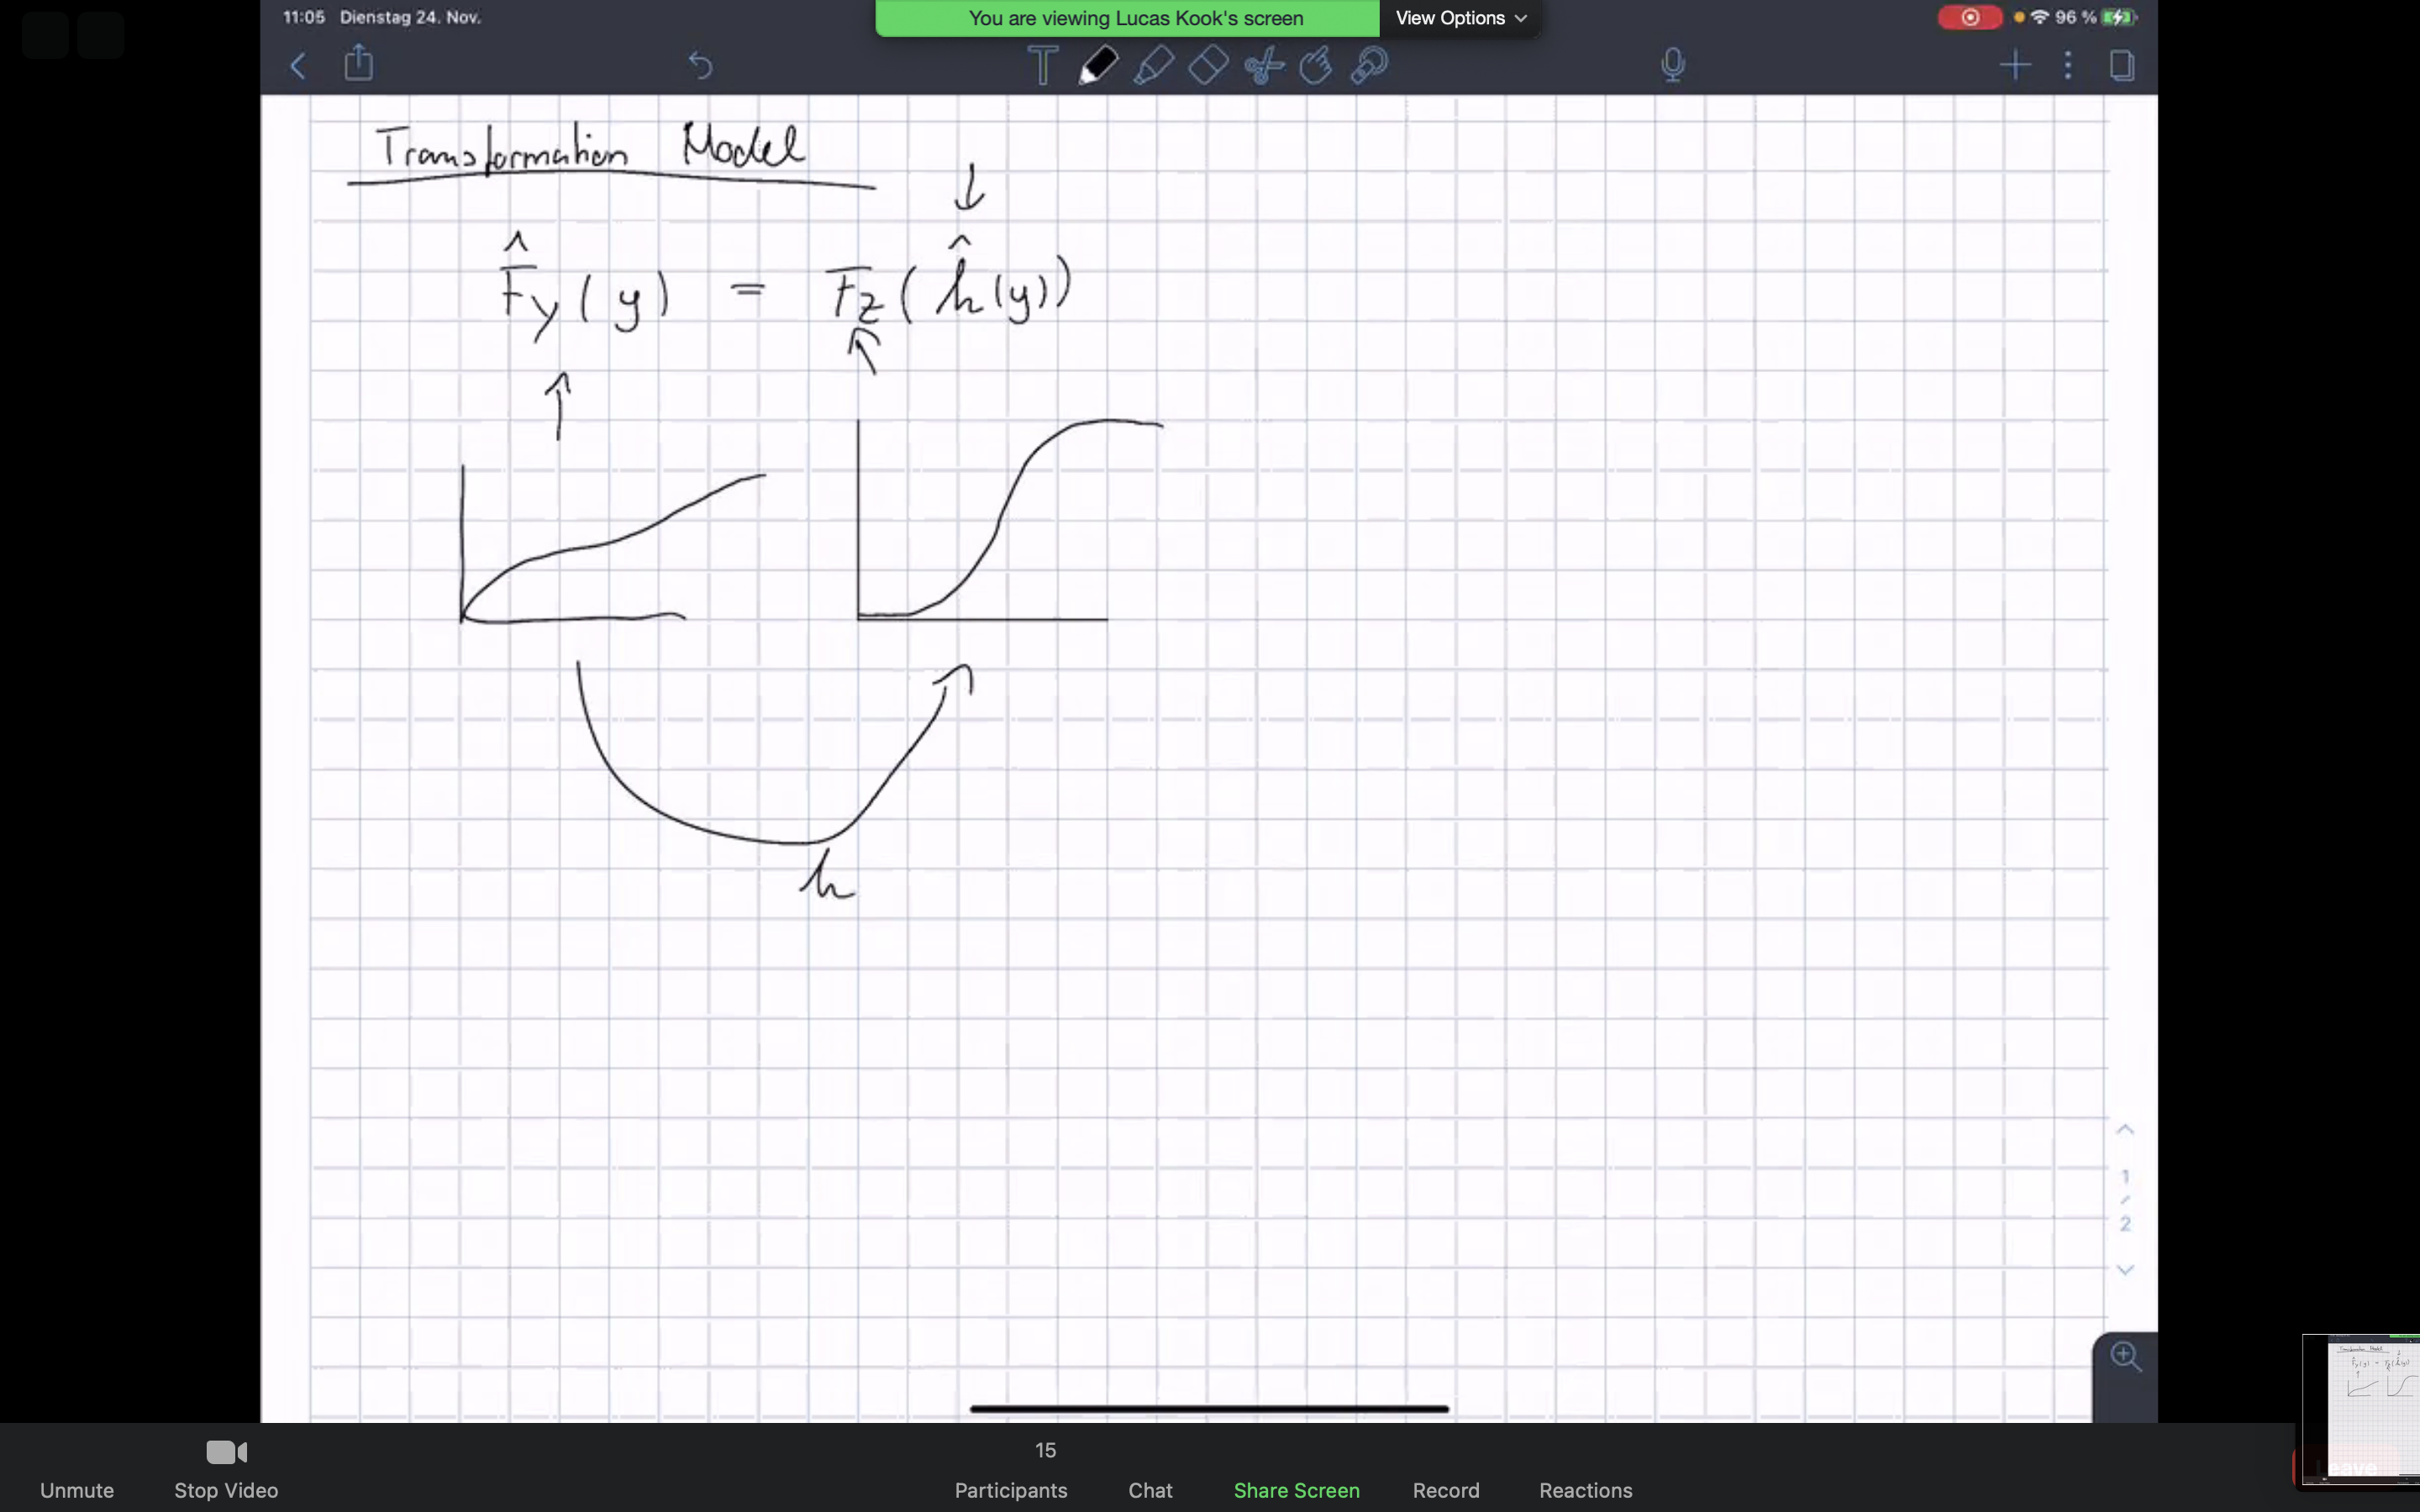 11:05 Dienstag 24. Nov.
You are viewing Lucas Kook's screen
View Options
96 %
Transformation Model
F̂_Y(y) = F_Z(ĥ(y))
h
1
/
2
15
Unmute
Stop Video
Participants
Chat
Share Screen
Record
Reactions